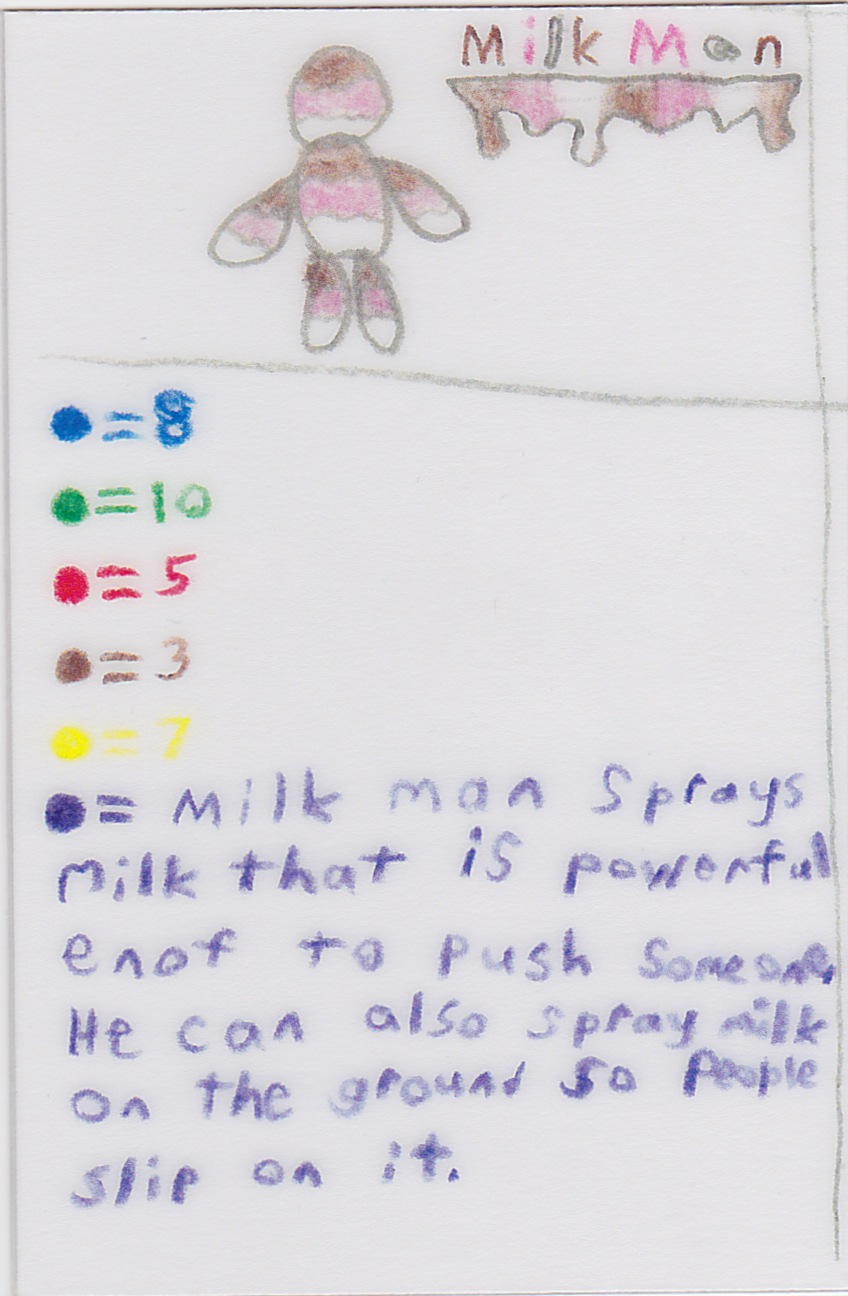 Milk Man
= 8
= 10
= 5
= 3
= 7
= Milk man Sprays
Milk that is powerful
enof to push someone.
He can also spray milk
on the ground so People
slip on it.